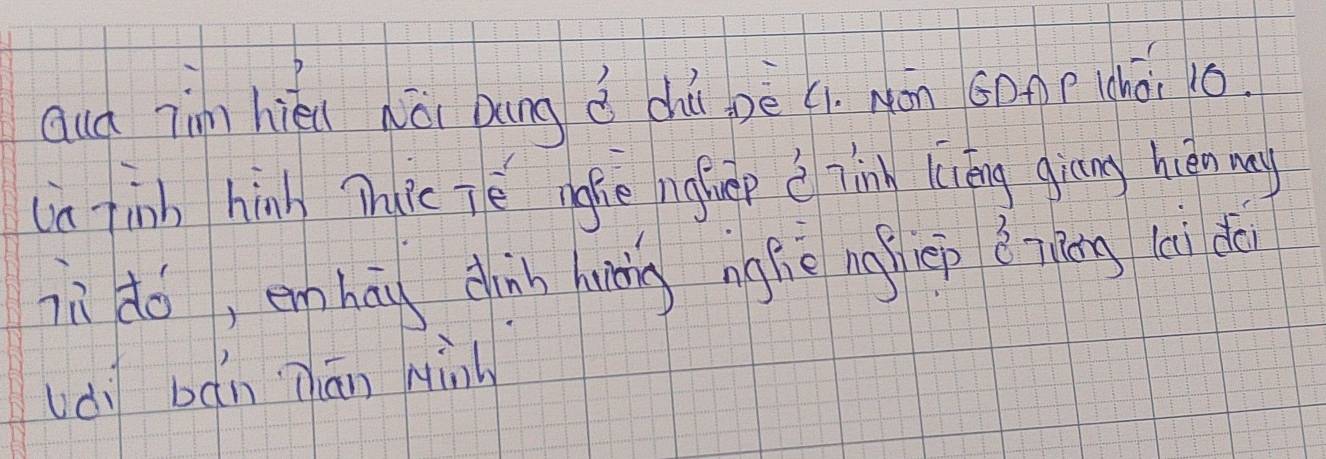 Qua Tìm hiểu Nội Dung ở chủ Đề 4. Môn GDĐP khối 10.
Và Tình hình Thực Tế nghề nghiệp ở Tỉnh kiêng giang hiện nay
Từ đó, em hãy định hướng nghề nghiệp ở Tương lai đối
với bản Thân Mình